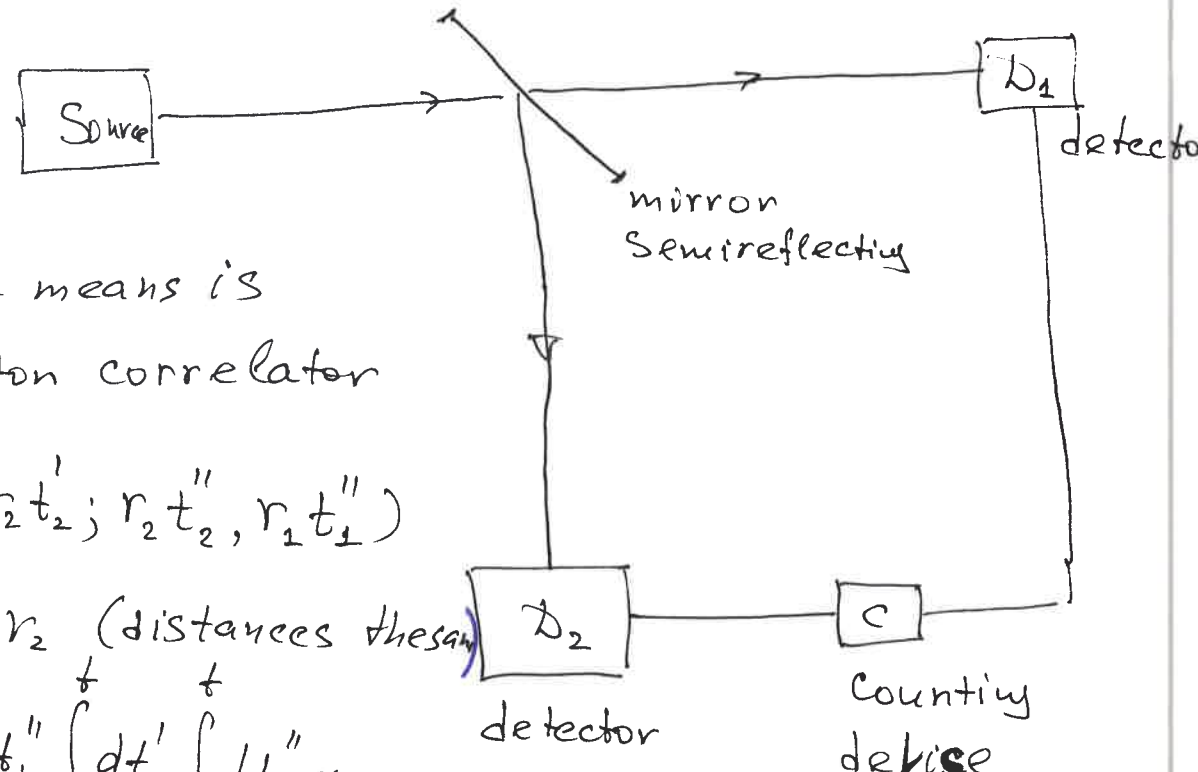 Source
D₁
detecto
mirron
Semireflecting
means is
ton correlator
₂t₂'; r₂t₂'', r₁t₁'')
r₂ (distances thesam)
D₂
C
detector
Counting
device
t t
t₁'' ∫dt' ∫